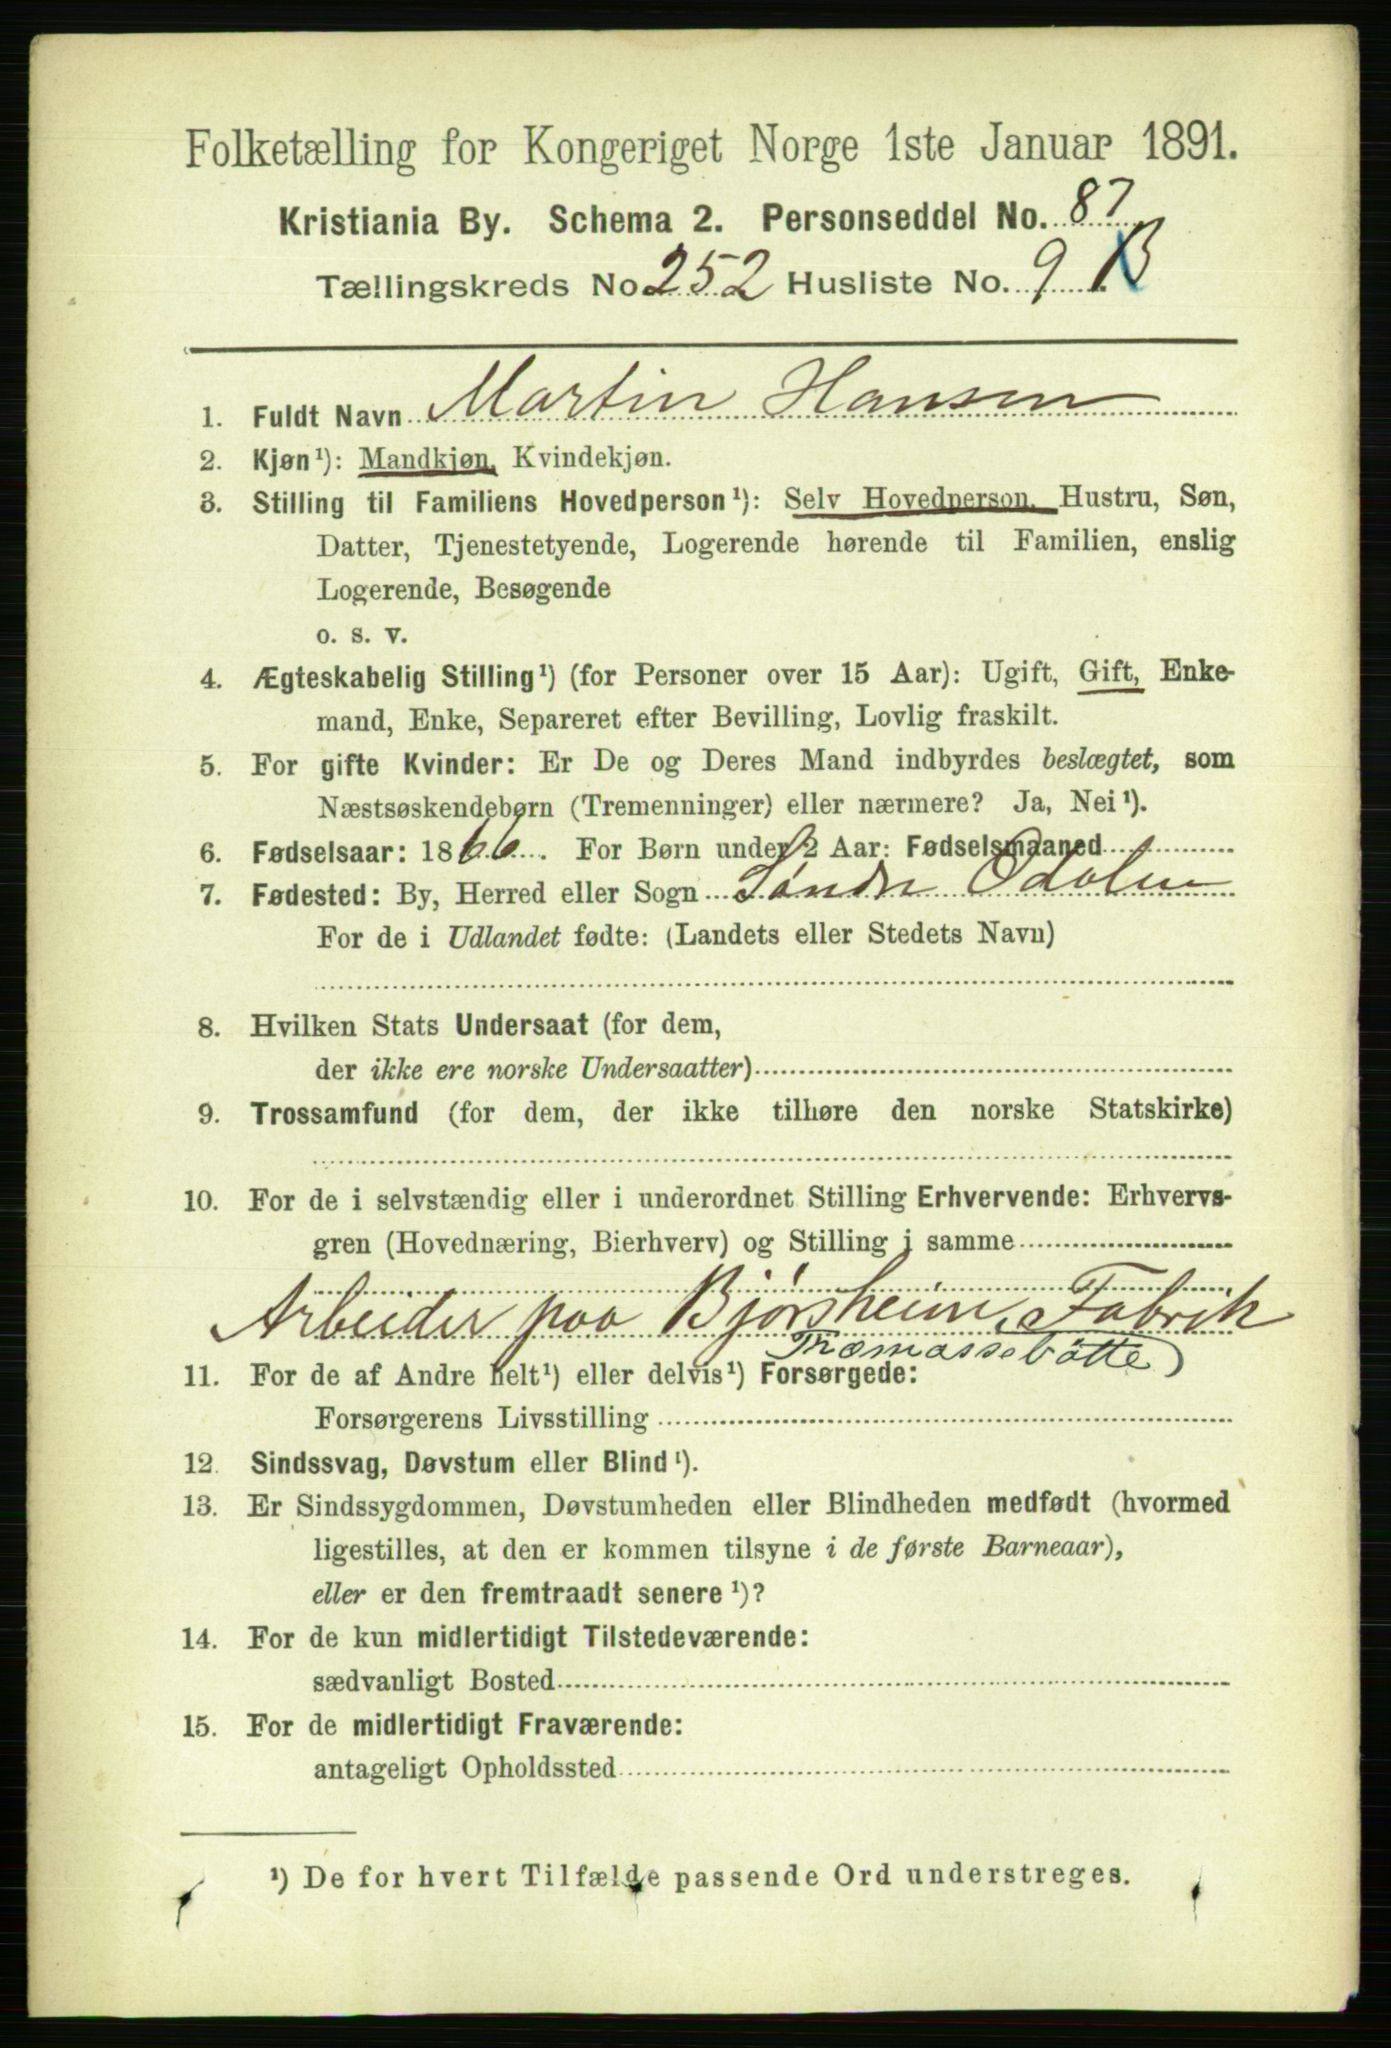 Folketælling for Kongeriget Norge 1ste Januar 1891.
Kristiania By. Schema 2. Personseddel No. 87
Tællingskreds No. 252 Husliste No. 9 B
1. Fuldt Navn Martin Hansen
2. Kjøn¹): Mandkjøn, Kvindekjøn.
3. Stilling til Familiens Hovedperson¹): Selv Hovedperson, Hustru, Søn,
Datter, Tjenestetyende, Logerende hørende til Familien, enslig
Logerende, Besøgende
o. s. v.
4. Ægteskabelig Stilling¹) (for Personer over 15 Aar): Ugift, Gift, Enke-
mand, Enke, Separeret efter Bevilling, Lovlig fraskilt.
5. For gifte Kvinder: Er De og Deres Mand indbyrdes beslægtet, som
Næstsøskendebørn (Tremenninger) eller nærmere? Ja, Nei¹).
6. Fødselsaar: 1866. For Børn under 2 Aar: Fødselsmaaned
7. Fødested: By, Herred eller Sogn Søndre Odalen
For de i Udlandet fødte: (Landets eller Stedets Navn)
8. Hvilken Stats Undersaat (for dem,
der ikke ere norske Undersaatter)
9. Trossamfund (for dem, der ikke tilhøre den norske Statskirke)
10. For de i selvstændig eller i underordnet Stilling Erhvervende: Erhvervs-
gren (Hovednæring, Bierhverv) og Stilling i samme
Arbeider paa Bjørsheim, Fabrik
Thomassebøtte)
11. For de af Andre helt¹) eller delvis¹) Forsørgede:
Forsørgerens Livsstilling
12. Sindssvag, Døvstum eller Blind¹).
13. Er Sindssygdommen, Døvstumheden eller Blindheden medfødt (hvormed
ligestilles, at den er kommen tilsyne i de første Barneaar),
eller er den fremtraadt senere¹)?
14. For de kun midlertidigt Tilstedeværende:
sædvanligt Bosted
15. For de midlertidigt Fraværende:
antageligt Opholdssted
¹) De for hvert Tilfælde passende Ord understreges.